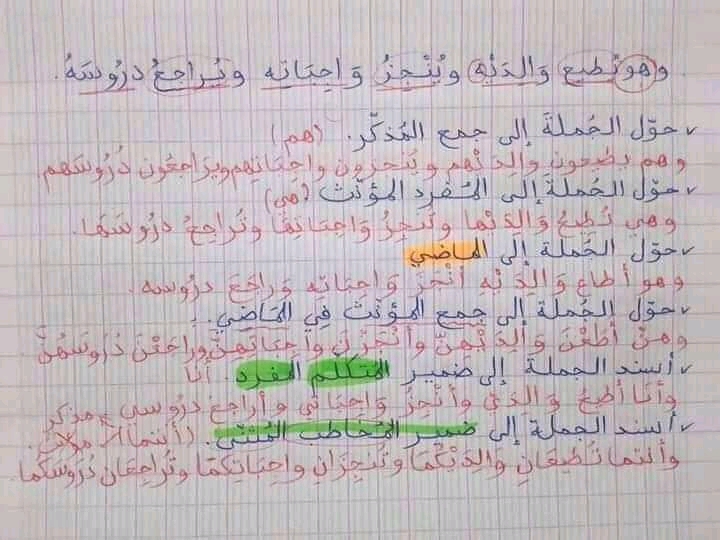 وهو يُطيع وَالِدَيْهِ ويُنْجِزُ وَاجِبَاتِه ويُراجعُ دُروسَهُ.
✓ حوّل الجُملةَ إلى جمع المُذكّر. (هم)
وهم يطيعون والِدَيْهم وينجزون واجباتِهم ويراجعُون دُرُوسَهم
✓ حوّل الجُملةَ إلى المُفرد المؤنّث (هي)
وهي تُطِيعُ وَالِدَيْها وتُنْجِزُ وَاجِبَاتِهَا وتُراجِعُ دُروسَهَا.
✓ حوّل الجُملة إلى الماضي
وهو أطاع وَالِدَيْهِ أنْجَزَ وَاجباتِه وَراجَعَ دروسه.
✓ حوّل الجُملة إلى جمع المؤنّث في المَاضي.
وهنّ أطَعْنَ وَالِدَيْهِنّ وأنْجَزْنَ وَاجِبَاتِهِنّ وراجَعْنَ دُروسَهُنّ.
✓ أسند الجملة إلى ضمير المتكلم المفرد. أنا
وأنَا أطيعُ وَالِدَيَّ وأُنْجِزُ وَاجِبَاتي وأراجِعُ دروسي * مذكر
✓ أسند الجملة إلى ضمير المُخاطب المُثنّى. (أنتما) مؤنث.
وأنتما تُطيعَانِ وَالِدَيْكُمَا وتُنْجِزَانِ وَاجِبَاتِكُمَا وتُراجِعَانِ دُرُوسَكُمَا.